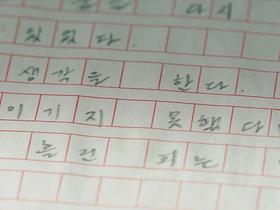 다시
있었다.
생각을 한다.
이기지 못했다
흘린 피는